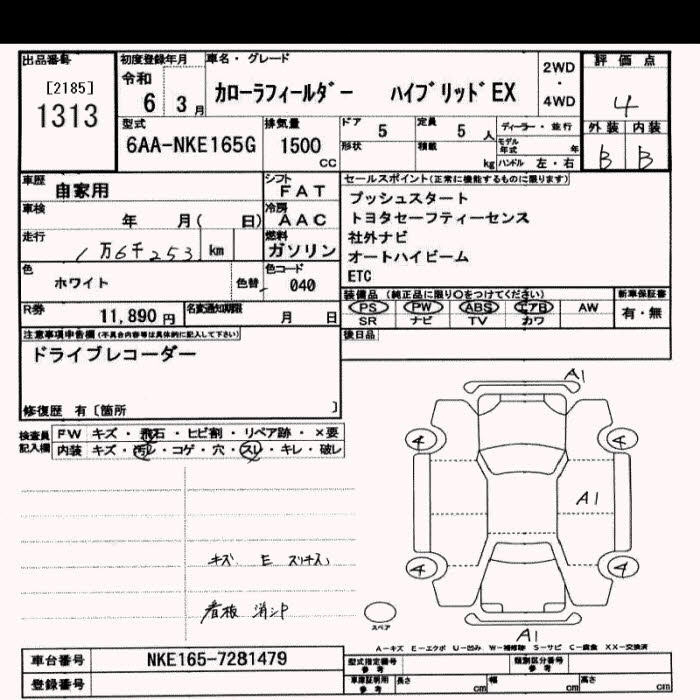 出品番号
[2185]
1313
初度登録年月
令和
6 3月
車名・グレード
カローラフィールダー ハイブリッドEX
2WD
・
4WD
評価点
4
外装 内装
B B
型式
6AA-NKE165G
排気量
1500
cc
ドア 5
定員 5 人
ディーラー・並行
形状
積載 kg
モデル年式 年
ハンドル 左・右
車歴
自家用
シフト
FAT
セールスポイント(正常に機能するものに限ります)
プッシュスタート
トヨタセーフティーセンス
社外ナビ
オートハイビーム
ETC
車検
年 月( 日)
冷房
AAC
走行
1万6千253 km
燃料
ガソリン
色
ホワイト
色替
色コード
040
装備品 (純正品に限り○をつけてください)
新車保証書
PS PW ABS エアB AW
有・無
SR ナビ TV カワ
R券
11,890円
名変通知期限
月 日
後日品
注意事項申告欄(不具合内容等は具体的に記入して下さい)
ドライブレコーダー
修復歴 有〔箇所 〕
検査員
記入欄
FW キズ・飛石・ヒビ割・リペア跡・×要
内装 キズ・汚レ・コゲ・穴・スレ・キレ・破レ
A1
4 4
A1
4 4
A1
キズ E スリキズ
看板 消シP
スペア
A-キズ E-エクボ U-凹み W-補修跡 S-サビ C-腐食 XX-交換済
車台番号
NKE165-7281479
登録番号
型式指定番号
参考
類別区分番号
参考
車庫証明用
参考
長さ cm
幅 cm
高さ cm